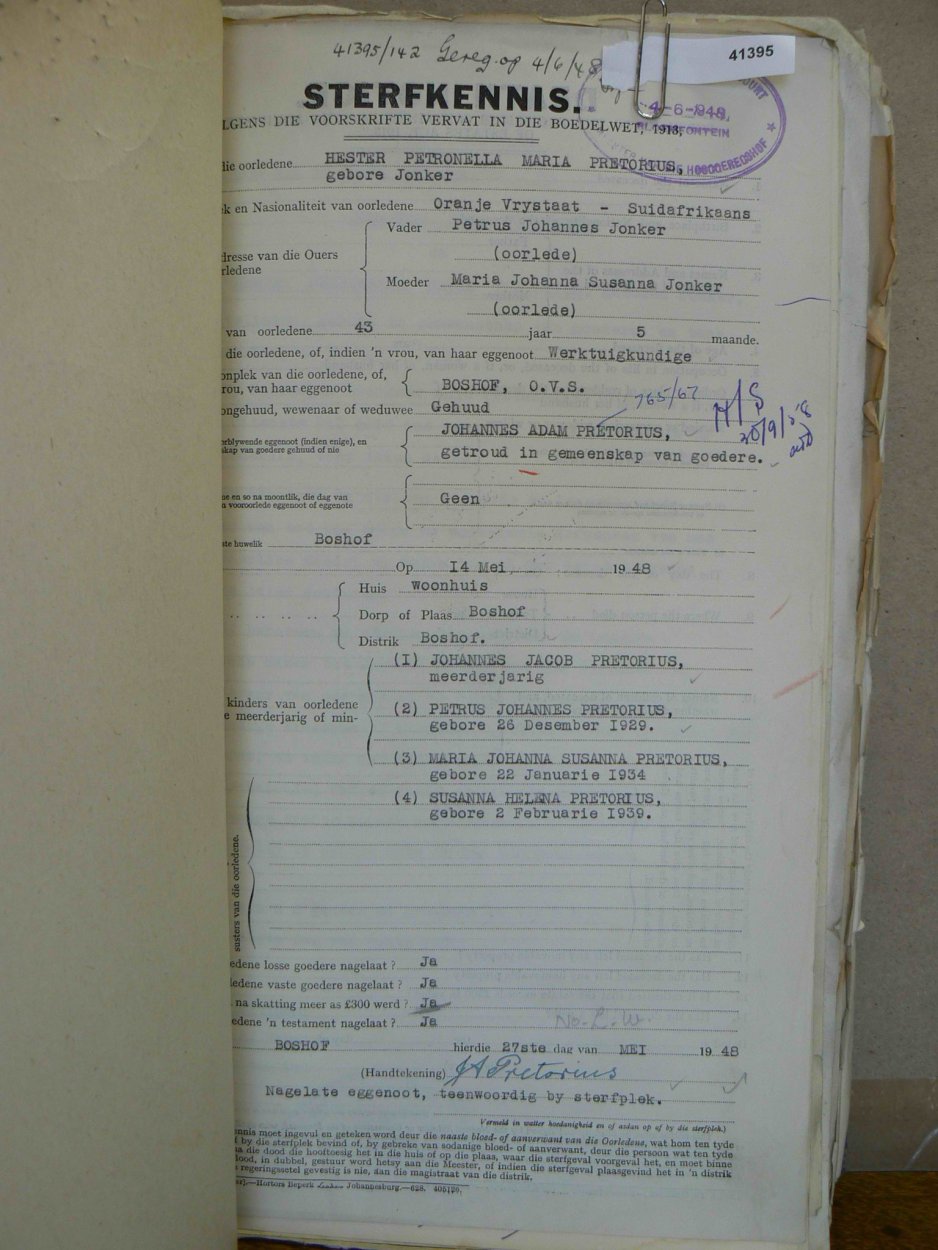 41395/142 Gereg. op 4/6/48
41395
STERFKENNIS.
4-6-1948
BLOEMFONTEIN
HOOGGEREGSHOF
LGENS DIE VOORSKRIFTE VERVAT IN DIE BOEDELWET, 1913,
die oorledene HESTER PETRONELLA MARIA PRETORIUS,
gebore Jonker
k en Nasionaliteit van oorledene Oranje Vrystaat - Suidafrikaans
Vader Petrus Johannes Jonker
dresse van die Ouers (oorlede)
rledene
Moeder Maria Johanna Susanna Jonker
(oorlede)
van oorledene 43 jaar 5 maande.
die oorledene, of, indien 'n vrou, van haar eggenoot Werktuigkundige
onplek van die oorledene, of,
rou, van haar eggenoot BOSHOF, O.V.S.
765/67
ongehuud, wewenaar of weduwee Gehuud
H/S
20/9/58
rblywende eggenoot (indien enige), en JOHANNES ADAM PRETORIUS,
kap van goedere gehuud of nie getroud in gemeenskap van goedere.
ne en so na moontlik, die dag van Geen
n vooroorlede eggenoot of eggenote
te huwelik Boshof
Op 14 Mei 1948
Huis Woonhuis
Dorp of Plaas Boshof
Distrik Boshof.
(1) JOHANNES JACOB PRETORIUS,
meerderjarig
kinders van oorledene (2) PETRUS JOHANNES PRETORIUS,
e meerderjarig of min- gebore 26 Desember 1929.
(3) MARIA JOHANNA SUSANNA PRETORIUS,
gebore 22 Januarie 1934
(4) SUSANNA HELENA PRETORIUS,
gebore 2 Februarie 1939.
susters van die oorledene.
edene losse goedere nagelaat ? Ja
ledene vaste goedere nagelaat ? Ja
na skatting meer as £300 werd ? Ja
edene 'n testament nagelaat ? Ja
No. L. W.
BOSHOF hierdie 27ste dag van MEI 1948
(Handtekening) JA Pretorius
Nagelate eggenoot, teenwoordig by sterfplek.
Vermeld in watter hoedanigheid en of asdan op of by die sterfplek.)
nnis moet ingevul en geteken word deur die naaste bloed- of aanverwant van die Oorledene, wat hom ten tyde
f by die sterfplek bevind of, by gebreke van sodanige bloed- of aanverwant, deur die persoon wat ten tyde
na die dood die hooftoesig het in die huis of op die plaas, waar die sterfgeval voorgeval het, en moet binne
lood, in dubbel, gestuur word hetsy aan die Meester, of indien die sterfgeval plaasgevind het in 'n distrik
regeringsetel gevestig is nie, aan die magistraat van die distrik.
Hortors Beperk Johannesburg.—628. 405120.